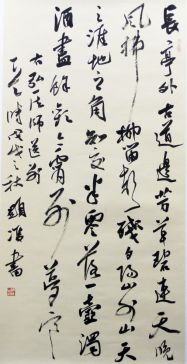 長亭外古道邊芳草碧連天晚
風拂柳笛聲殘夕陽山外山天
之涯地之角知交半零落一壺濁
酒盡餘歡今宵別夢寒
法師送別
時戊戌之秋 書